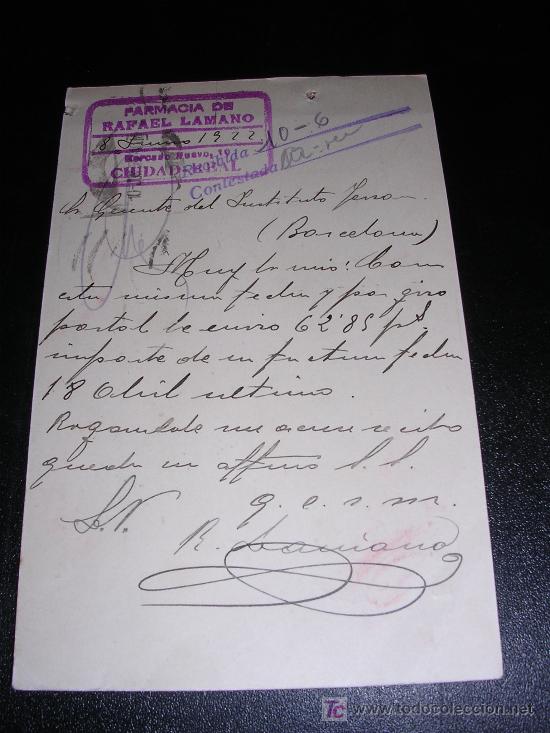 FARMACIA DE
RAFAEL LAMANO
8 Junio 1922
Mercado Nuevo, 10
CIUDAD REAL
Recibida 10-6
Contestada
Sr Gerente del Instituto
(Barcelona)
Muy Sr mio: Con
esta misma fecha y por giro
postal le envio 62'85 pts.
importe de su factura fecha
18 Abril ultimo.
Rogandole me acuse recibo
queda su affmo S. S.
q. e. s. m.
S.N.
R. Lamano
TC
todocoleccion
www.todocoleccion.net